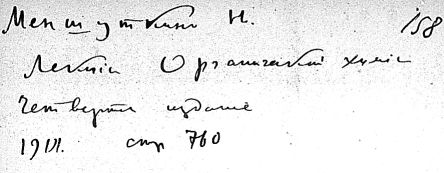 Меншуткин Н. 158
Лекции Органической химии
Четвертое издание
1901. стр 760